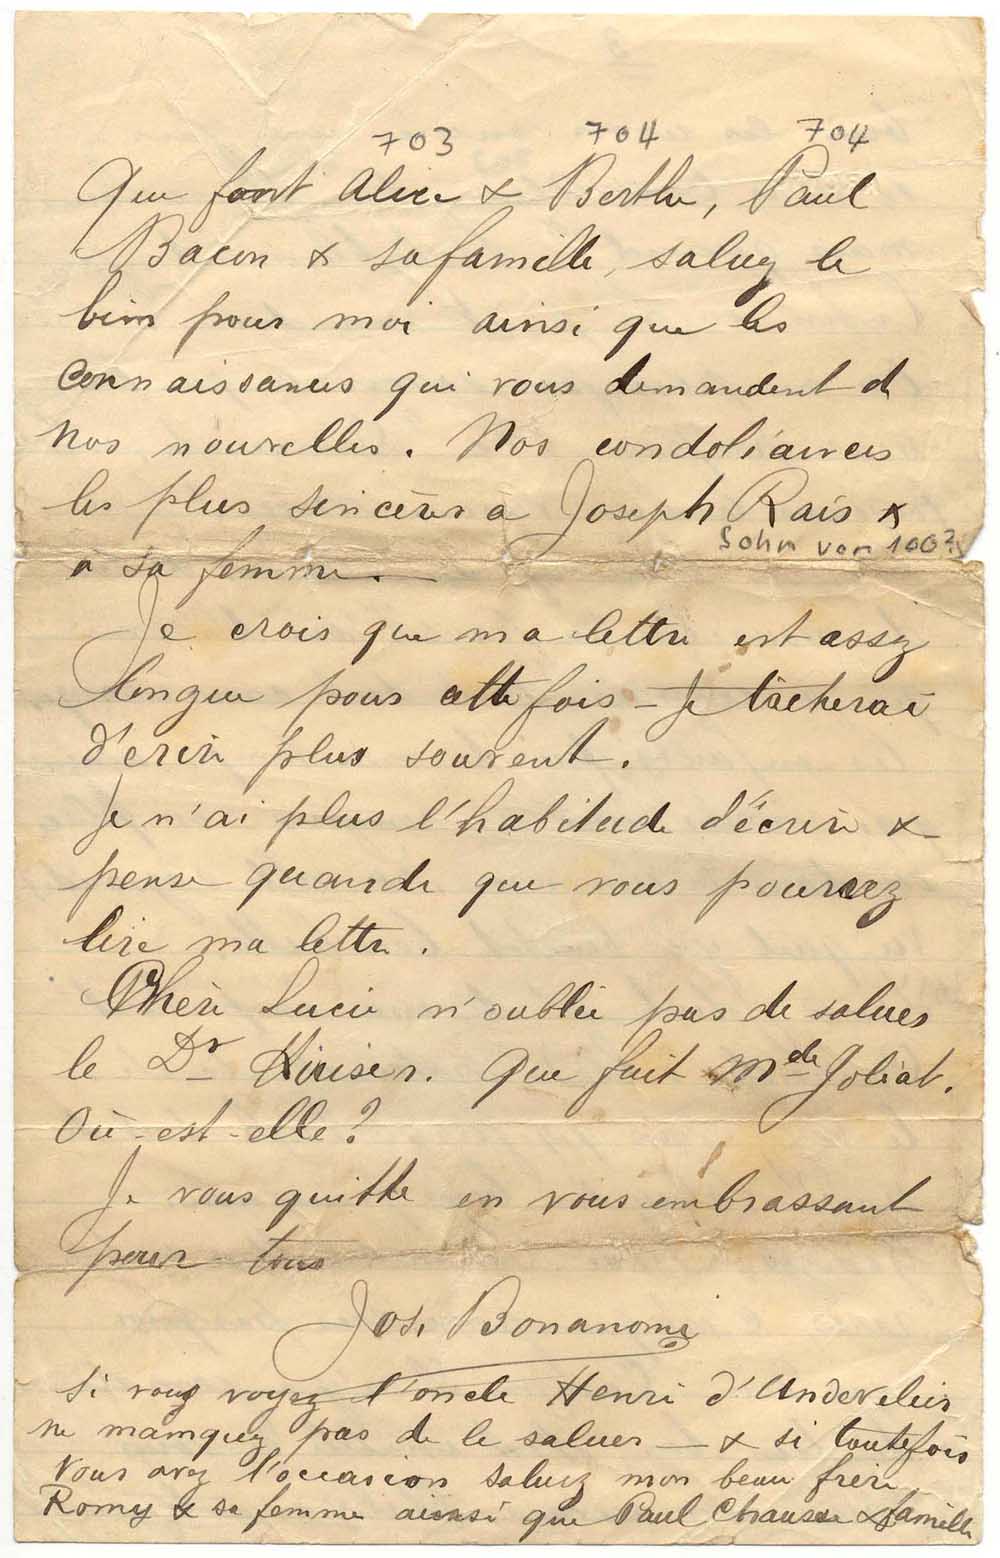 703 704 704
Que font Alice & Berthe, Paul
Bacon & sa famille, saluez le
bien pour moi ainsi que les
connaissances qui vous demandent d
nos nouvelles. Nos condoléances
les plus sincères à Joseph Rais &
Sohn von 100?
a sa femme.
Je crois que ma lettre est assez
longue pour cette fois – Je tacherai
d'ecrire plus souvent.
Je n'ai plus l'habitude d'écrire &
pense quande que vous pourrez
lire ma lettre.
Chère Lucie n'oublie pas de saluer
le Dr. Que fait Mde Joliat.
Où-est-elle?
Je vous quitte en vous embrassant
pour tous
Jos. Bonanomi
Si vous voyez l'oncle Henri d'Undervelier
ne manquez pas de le saluer – & si toutefois
vous avez l'occasion saluez mon beau frère
Romy & sa femme ainsi que Paul Chausse & famille